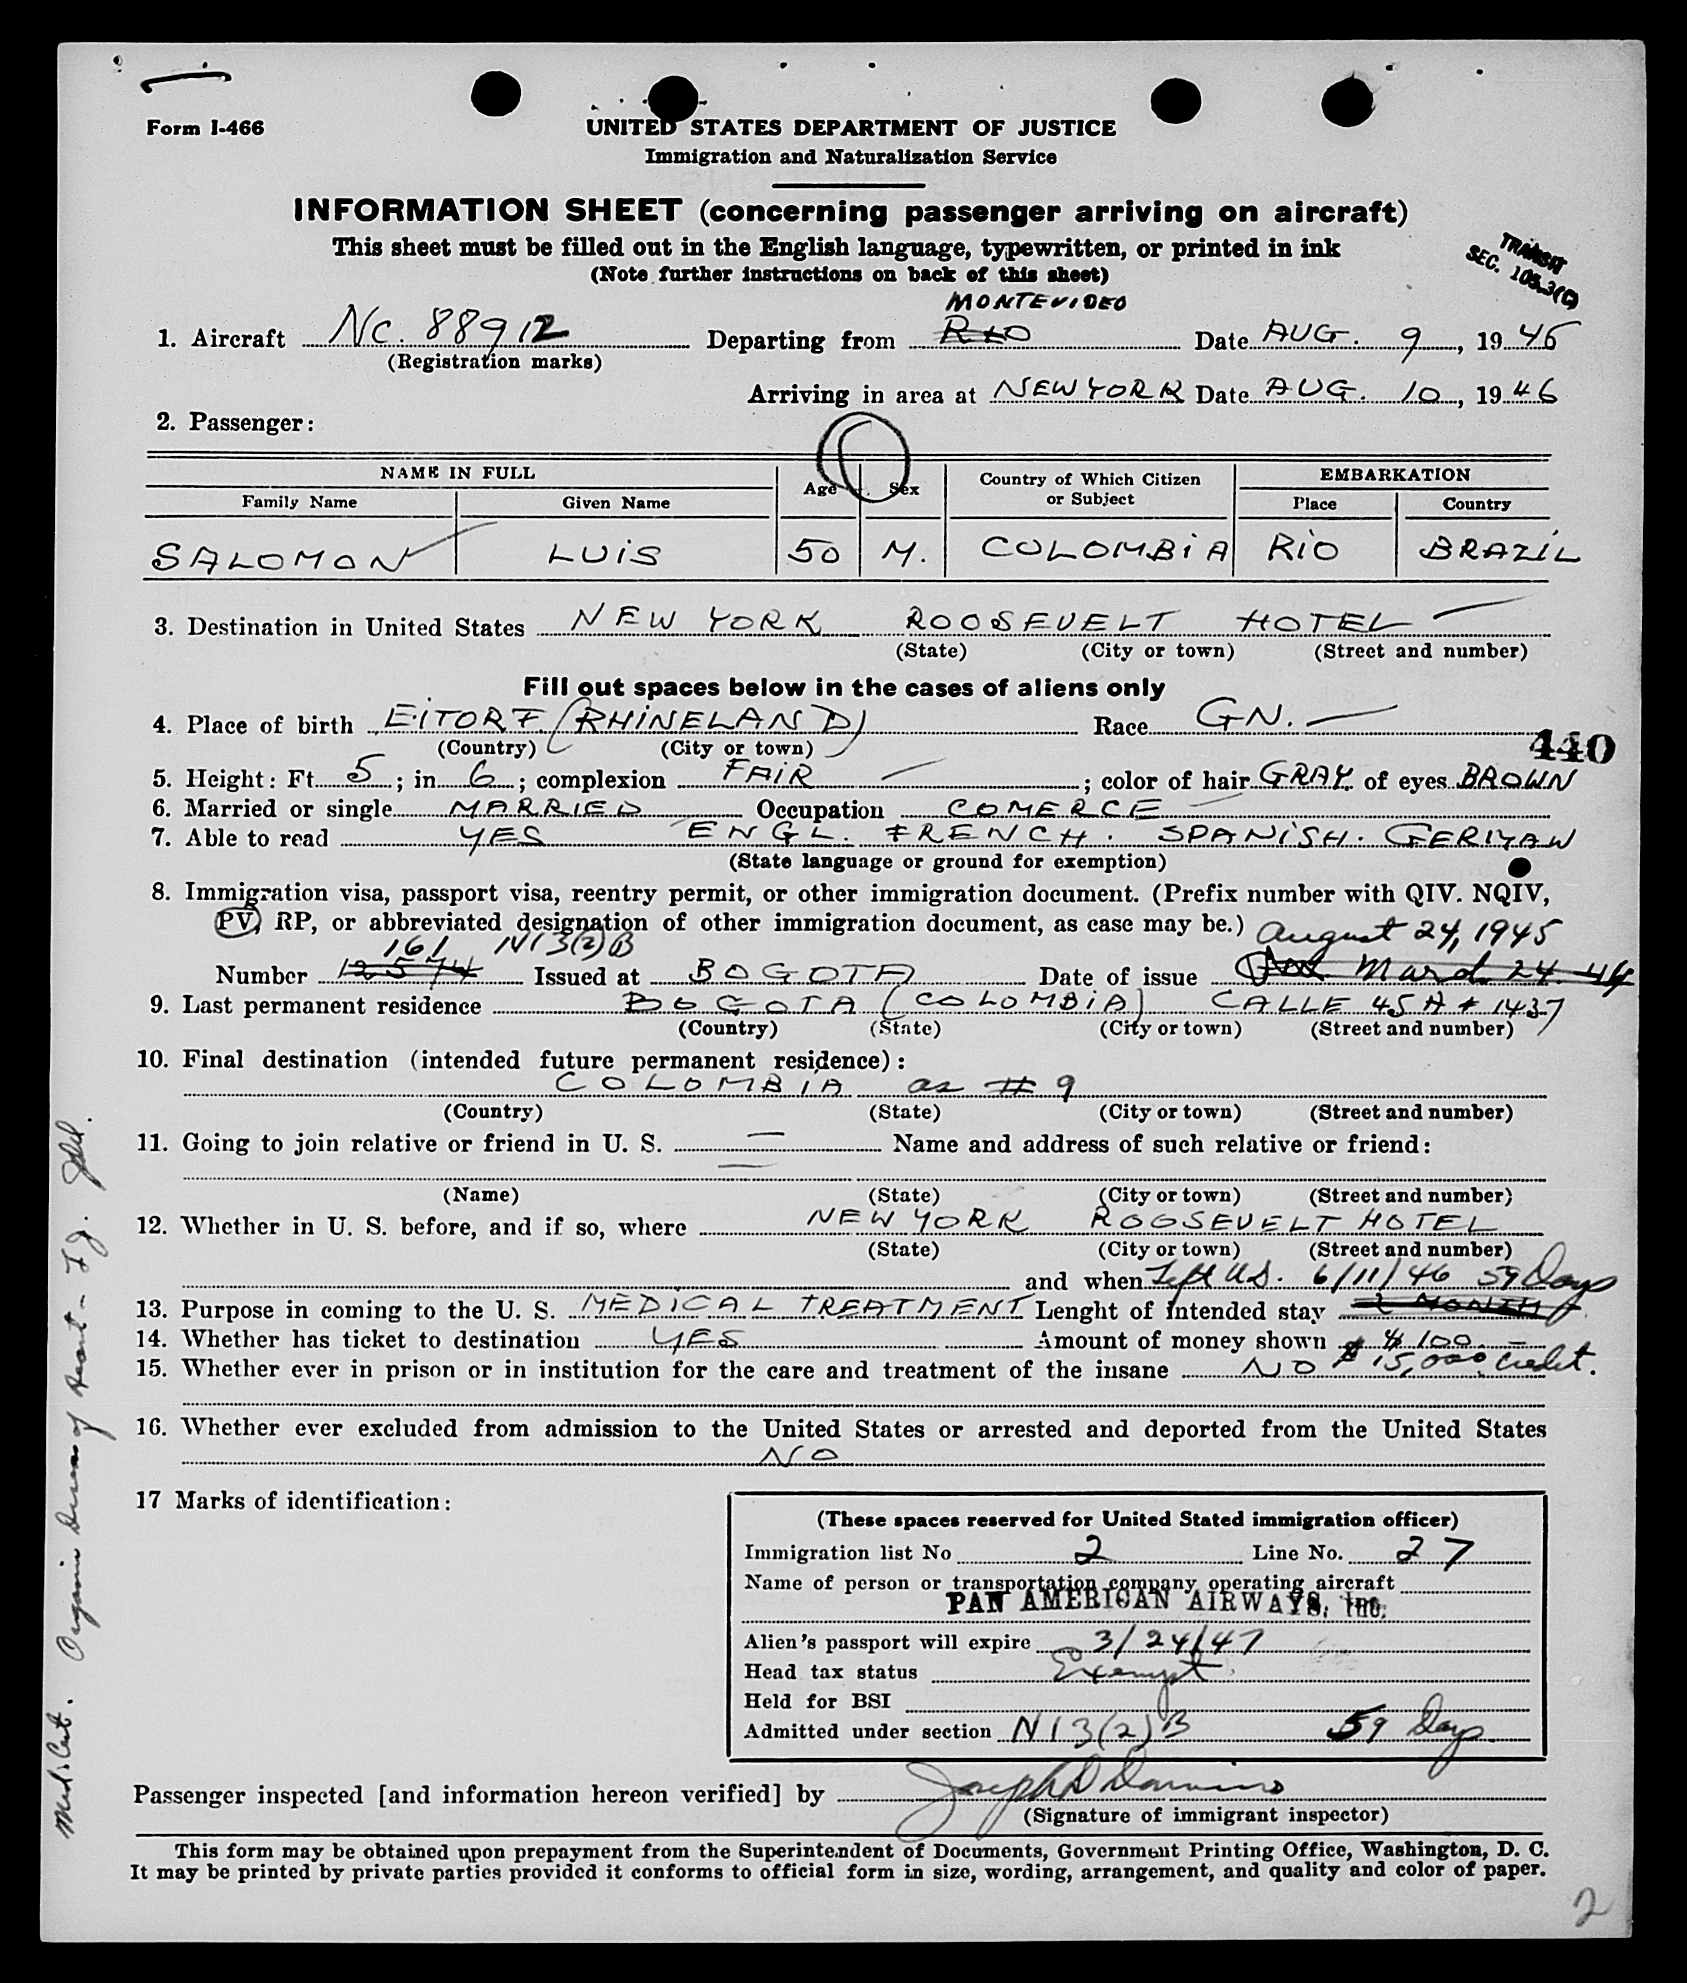 Form I-466
UNITED STATES DEPARTMENT OF JUSTICE
Immigration and Naturalization Service
INFORMATION SHEET (concerning passenger arriving on aircraft)
This sheet must be filled out in the English language, typewritten, or printed in ink
(Note further instructions on back of this sheet)
TRANSIT
SEC. 105.3(C)
MONTEVIDEO
1. Aircraft NC. 88912 Departing from RIO Date AUG. 9, 1946
(Registration marks)
Arriving in area at NEW YORK Date AUG. 10, 1946
2. Passenger:
NAME IN FULL Age Sex Country of Which Citizen or Subject EMBARKATION
Family Name Given Name Place Country
SALOMON LUIS 50 M. COLOMBIA RIO BRAZIL
3. Destination in United States NEW YORK ROOSEVELT HOTEL
(State) (City or town) (Street and number)
Fill out spaces below in the cases of aliens only
4. Place of birth EITORF (RHINELAND) Race GN.
(Country) (City or town)
440
5. Height: Ft. 5; in. 6; complexion FAIR; color of hair GRAY. of eyes BROWN
6. Married or single MARRIED Occupation COMERCE
7. Able to read YES ENGL. FRENCH. SPANISH. GERMAN
(State language or ground for exemption)
8. Immigration visa, passport visa, reentry permit, or other immigration document. (Prefix number with QIV. NQIV,
PV, RP, or abbreviated designation of other immigration document, as case may be.) August 24, 1945
161 N13(2)B
Number 12574 Issued at BOGOTA Date of issue March 24. 44
9. Last permanent residence BOGOTA (COLOMBIA) CALLE 45 A # 1437
(Country) (State) (City or town) (Street and number)
10. Final destination (intended future permanent residence):
COLOMBIA as # 9
(Country) (State) (City or town) (Street and number)
11. Going to join relative or friend in U. S. — Name and address of such relative or friend:
—
(Name) (State) (City or town) (Street and number)
12. Whether in U. S. before, and if so, where NEW YORK ROOSEVELT HOTEL
(State) (City or town) (Street and number)
and when Left U.S. 6/11/46 59 Days
13. Purpose in coming to the U. S. MEDICAL TREATMENT Lenght of intended stay 2 MONTH
14. Whether has ticket to destination YES Amount of money shown $ 100.—
15. Whether ever in prison or in institution for the care and treatment of the insane NO $ 15,000 credit.
16. Whether ever excluded from admission to the United States or arrested and deported from the United States
NO
17 Marks of identification:
(These spaces reserved for United Stated immigration officer)
Immigration list No 2 Line No. 27
Name of person or transportation company operating aircraft
PAN AMERICAN AIRWAYS, Inc.
Alien's passport will expire 3/24/47
Head tax status Exempt
Held for BSI
Admitted under section N13(2)B 59 Days
Passenger inspected [and information hereon verified] by Joseph D Domino
(Signature of immigrant inspector)
This form may be obtained upon prepayment from the Superintendent of Documents, Government Printing Office, Washington, D. C.
It may be printed by private parties provided it conforms to official form in size, wording, arrangement, and quality and color of paper.
2
Med. Cert. Organic Disease of Heart -